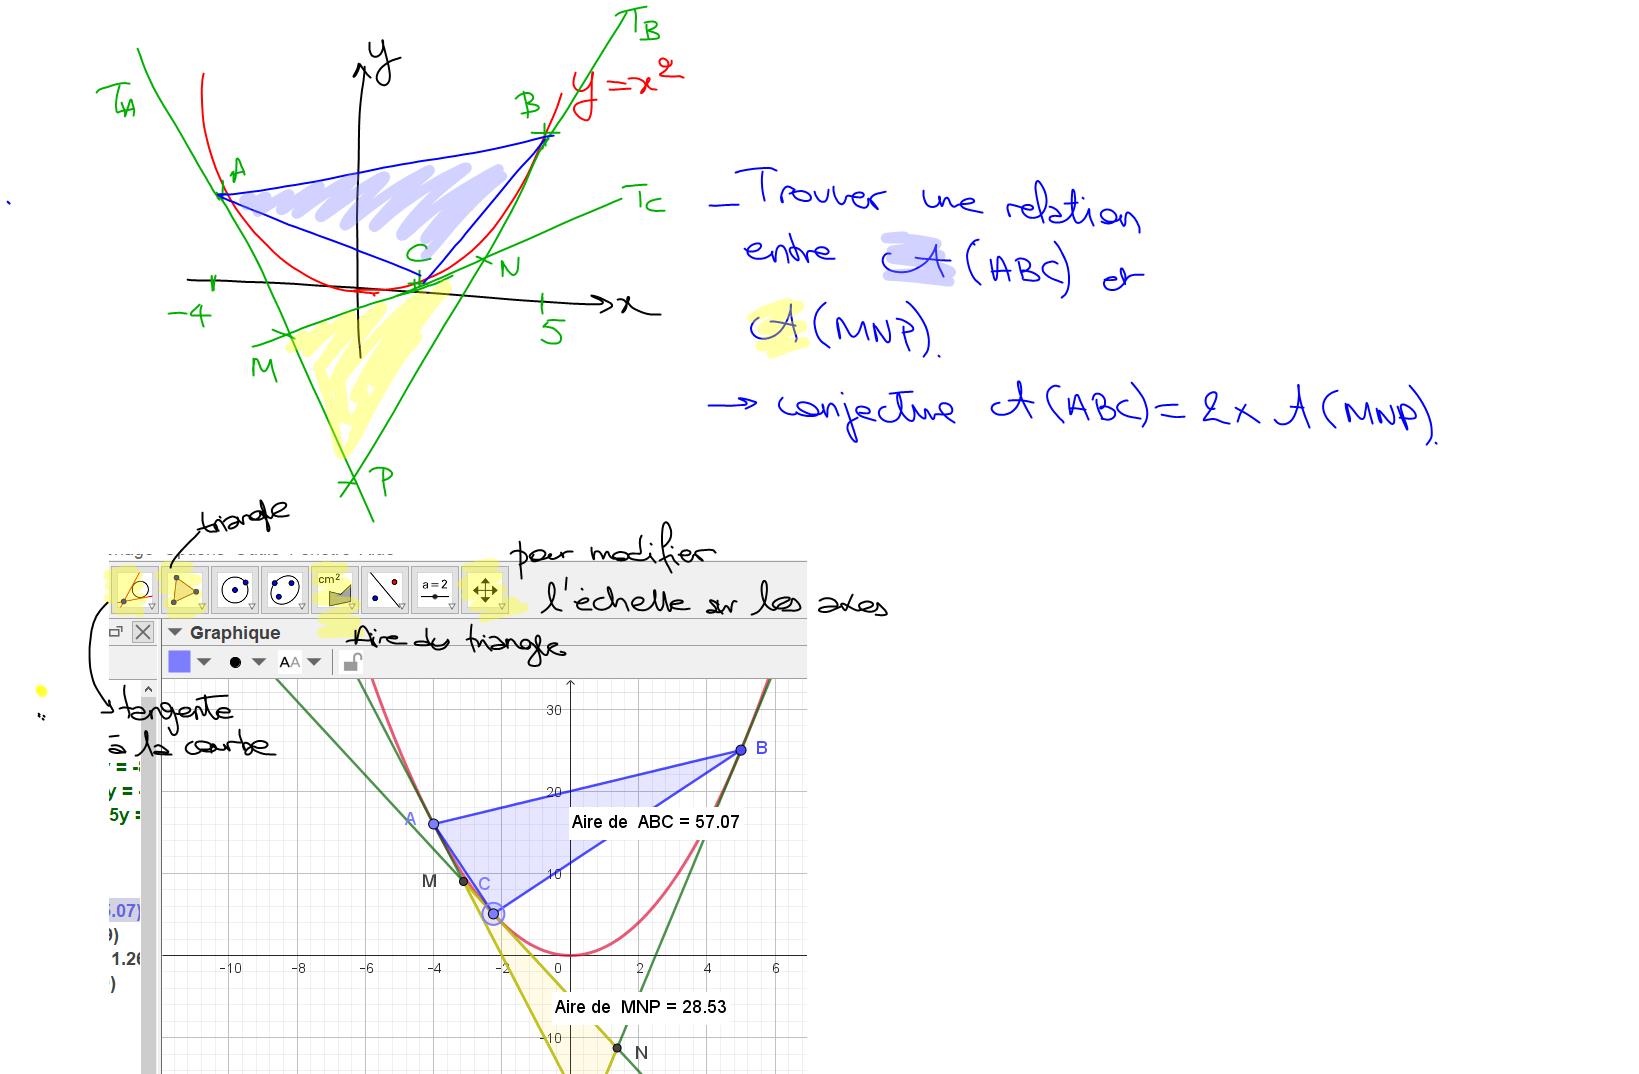 T_B
y
y = x²
T_A
B
A
T_C
C
N
-4
x
5
M
P
– Trouver une relation
entre A (ABC) et
A (MNP).
→ conjecture A (ABC) = 2 x A (MNP).
triangle
pour modifier
l'échelle sur les axes
cm²
a = 2
Graphique
Aire du triangle
AA
tangente
à la courbe
30
B
20
A
Aire de ABC = 57.07
y =
5y =
M
C
10
5.07)
9)
1.26
)
-10
-8
-6
-4
-2
0
2
4
6
Aire de MNP = 28.53
-10
N